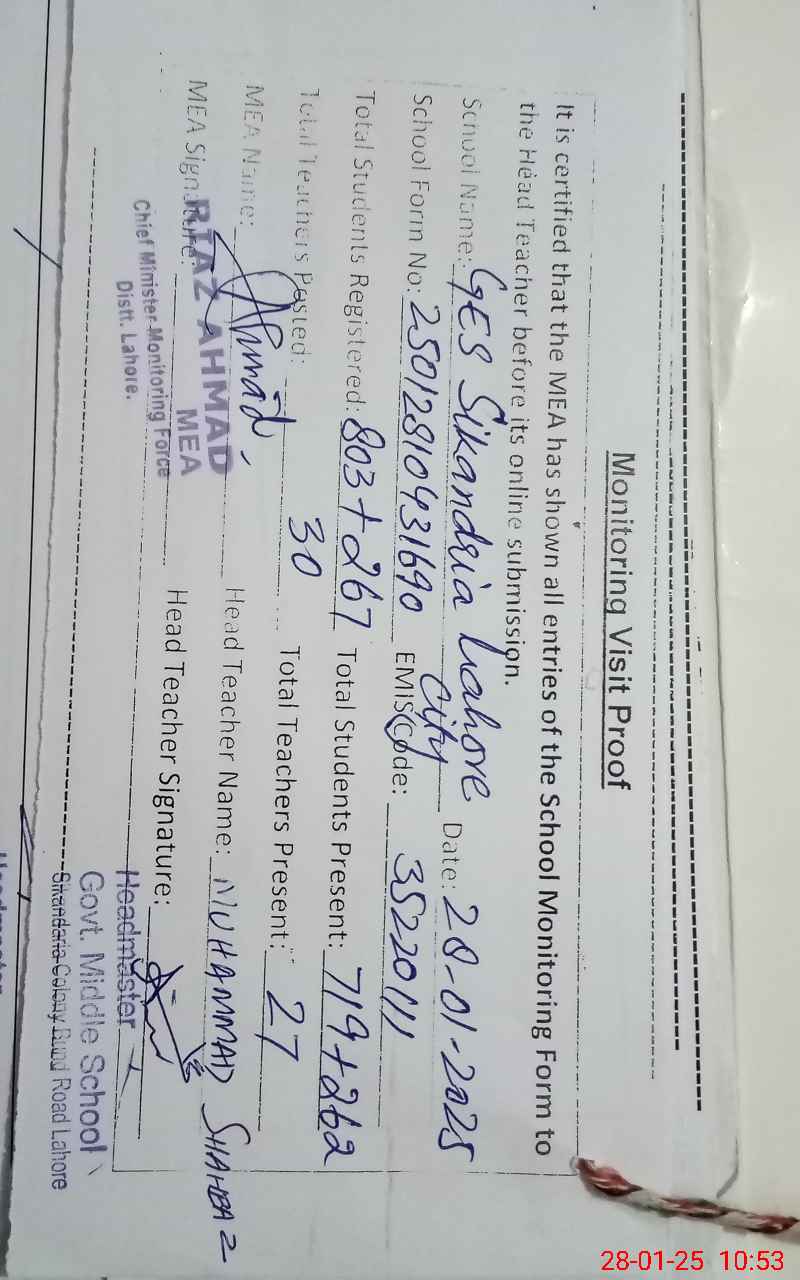 Monitoring Visit Proof
It is certified that the MEA has shown all entries of the School Monitoring Form to
the Head Teacher before its online submission.
School Name: GES Sikandria Lahore City Date: 28-01-2025
School Form No: 250128104931690 EMIS Code: 35220111
Total Students Registered: 803+267 Total Students Present: 719+262
Total Teachers Posted: 30 Total Teachers Present: 27
MEA Name: Ahmad Head Teacher Name: MUHAMMAD SHAHBAZ
MEA Signature: Head Teacher Signature:
RIAZ AHMAD
MEA
Chief Minister Monitoring Force
Distt. Lahore.
Headmaster
Govt. Middle School
Sikandaria Colony Bund Road Lahore
28-01-25 10:53